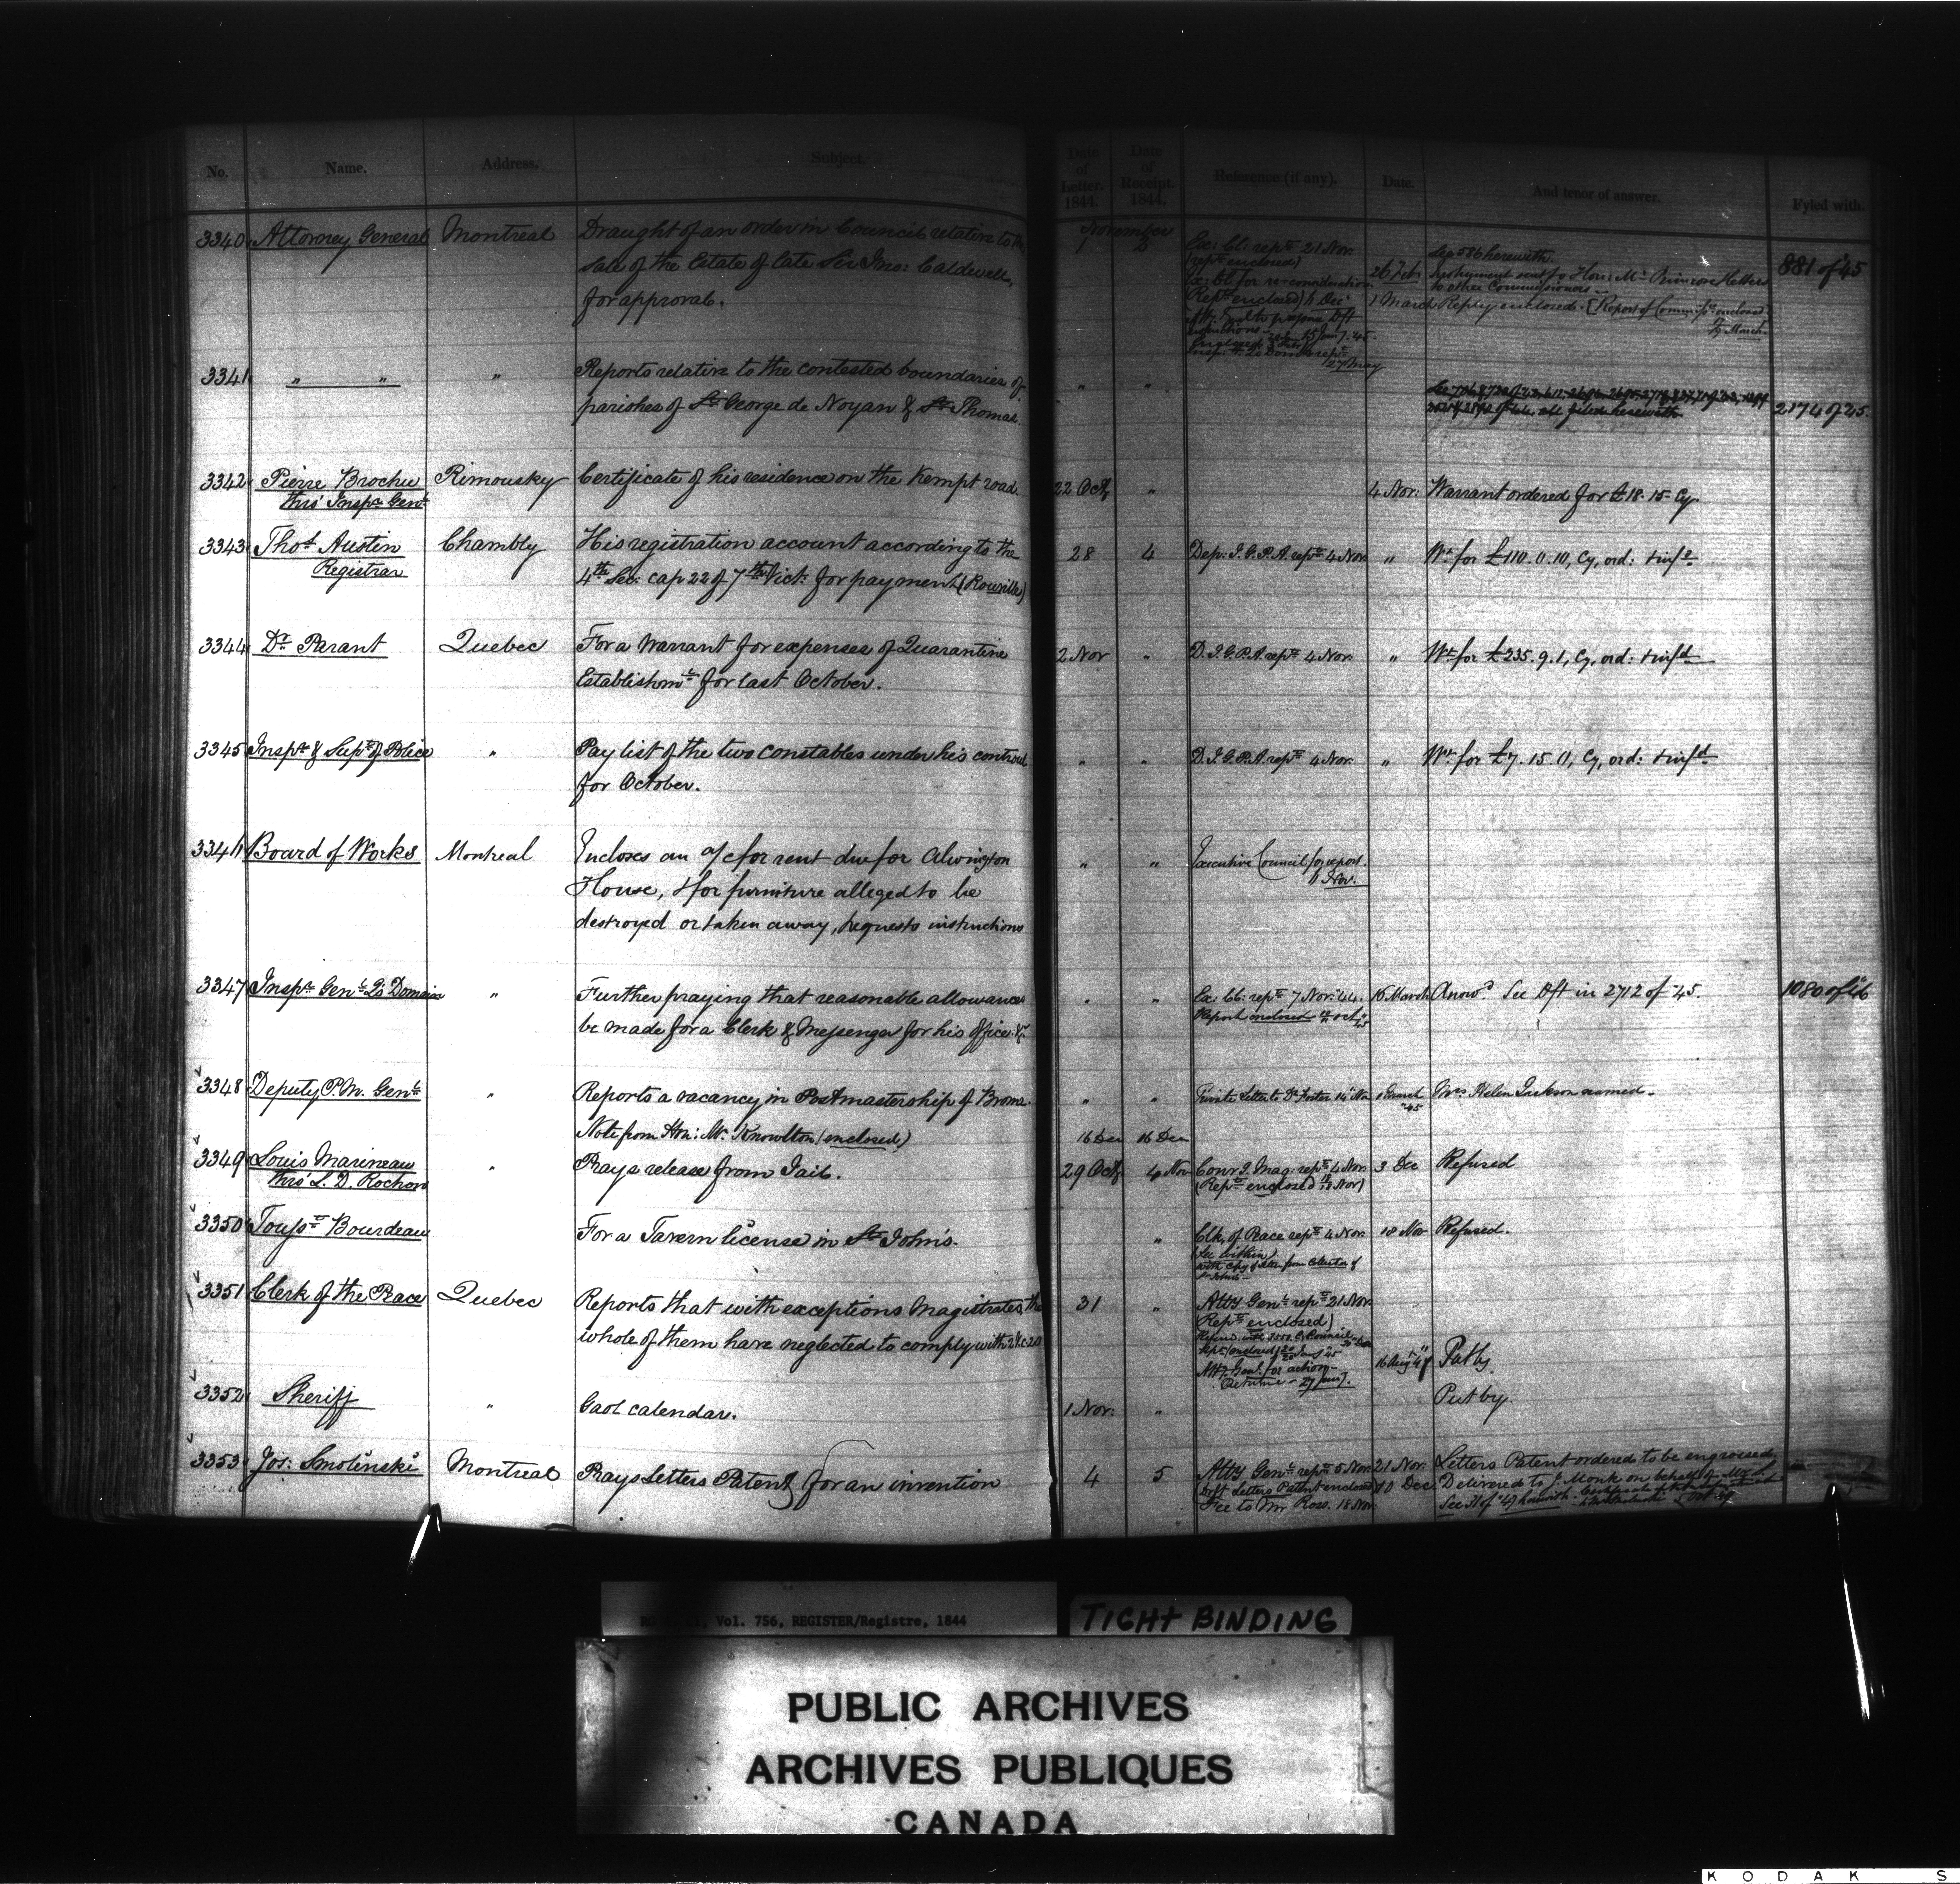 No. Name. Address. Subject. Date of Letter. 1844. Date of Receipt. 1844. Reference (if any). Date. And tenor of answer. Fyled with.
November
3340 Attorney General Montreal Draught of an order in Council relative to the 1 2 Ex: Cl: rept 21 Nov. See 586 herewith. 881 of 45
sale of the Estate of late Sir Jno: Caldwell, (rept enclosed) 26 Feb Instrument sent to Hon: Mr Primrose & letters
for approval. Ex: Cl for re-consideration to other Commissioners
Rept enclosed 6 Dec 1 March Reply enclosed. [Report of Commiss: enclosed
March
27 May
3341 " " " Reports relative to the contested boundaries of " "
parishes of St George de Noyan & St Thomas. all filed herewith 2174 of 45.
3342 Pierre Brochu Rimousky Certificate of his residence on the Kempt road. 22 Oct, " 4 Nov: Warrant ordered for £18.15 Cy.
thro' Inspr Genl
3343 Thos Austin Chambly His registration account according to the 28 4 Dep: I.G.P.A. rept 4 Nov. " Wt for £110.0.10, Cy, ord: & infd
Registrar 4th Sec: cap 22 of 7th Vict: for payment (Rouville)
3344 Dr Parant Quebec For a Warrant for expenses of Quarantine 2 Nov " D.I.G.P.A. rept 4 Nov. " Wt for £235.9.1, Cy, ord: & infd
Establishmt for last October.
3345 Inspr & Supt of Police " Pay list of the two constables under his controul " " D.I.G.P.A. rept 4 Nov. " Wt for £7.15.0, Cy, ord: & infd
for October.
3346 Board of Works Montreal Incloses an a/c for rent due for Alwington " " Executive Council for report
House, & for furniture alleged to be 6 Nov.
destroyed or taken away, requests instructions
3347 Inspr Genl Qs Domain " Further praying that reasonable allowances " " Ex: Cl: rept 7 Nov: 44. 15 March Answd See Dft in 2712 of 45. 1080 of 46
be made for a Clerk & Messenger for his office &c Report enclosed Oct 45
3348 Deputy P.M. Genl " Reports a vacancy in Postmastership of Brome. " " Private Letter to Dr Foster 14 Nov 1 March 45 Mrs Helen Jackson named.
Note from Hon: Mr Knowlton (enclosed) 16 Dec 16 Dec
3349 Louis Marineau " Prays release from Jail. 29 Oct, 4 Nov Convg. Mag: rept 4 Nov. 3 Dec Refused
thro' L. D. Rochon (Rept enclosed 18 Nov)
3350 Tousst Bourdeau For a Tavern license in St John's. " Clk, of Peace rept 4 Nov. 18 Nov Refused.
(See within)
with copy of letter from Collector of
St Johns
3351 Clerk of the Peace Quebec Reports that with exceptions Magistrates, the 31 " Atty Genl rept 21 Nov.
whole of them have neglected to comply with Rept enclosed)
16 Aug Put by.
Atty Genl for action
Returned 27 Jany.
3352 Sheriff " Gaol calendar. 1 Nov: " Put by.
3353 Jos: Smolinski Montreal Prays Letters Patent for an invention 4 5 Atty Genl rept 5 Nov. 21 Nov: Letters Patent ordered to be engrossed
Dft Letters Patent enclosed 10 Dec Delivered to J. Monk on behalf of Mr S.
Fee to Mr Ross. 18 Nov. See 31 of 49 herewith
Vol. 756, REGISTER/Registre, 1844
TIGHT BINDING
PUBLIC ARCHIVES
ARCHIVES PUBLIQUES
CANADA
KODAK S